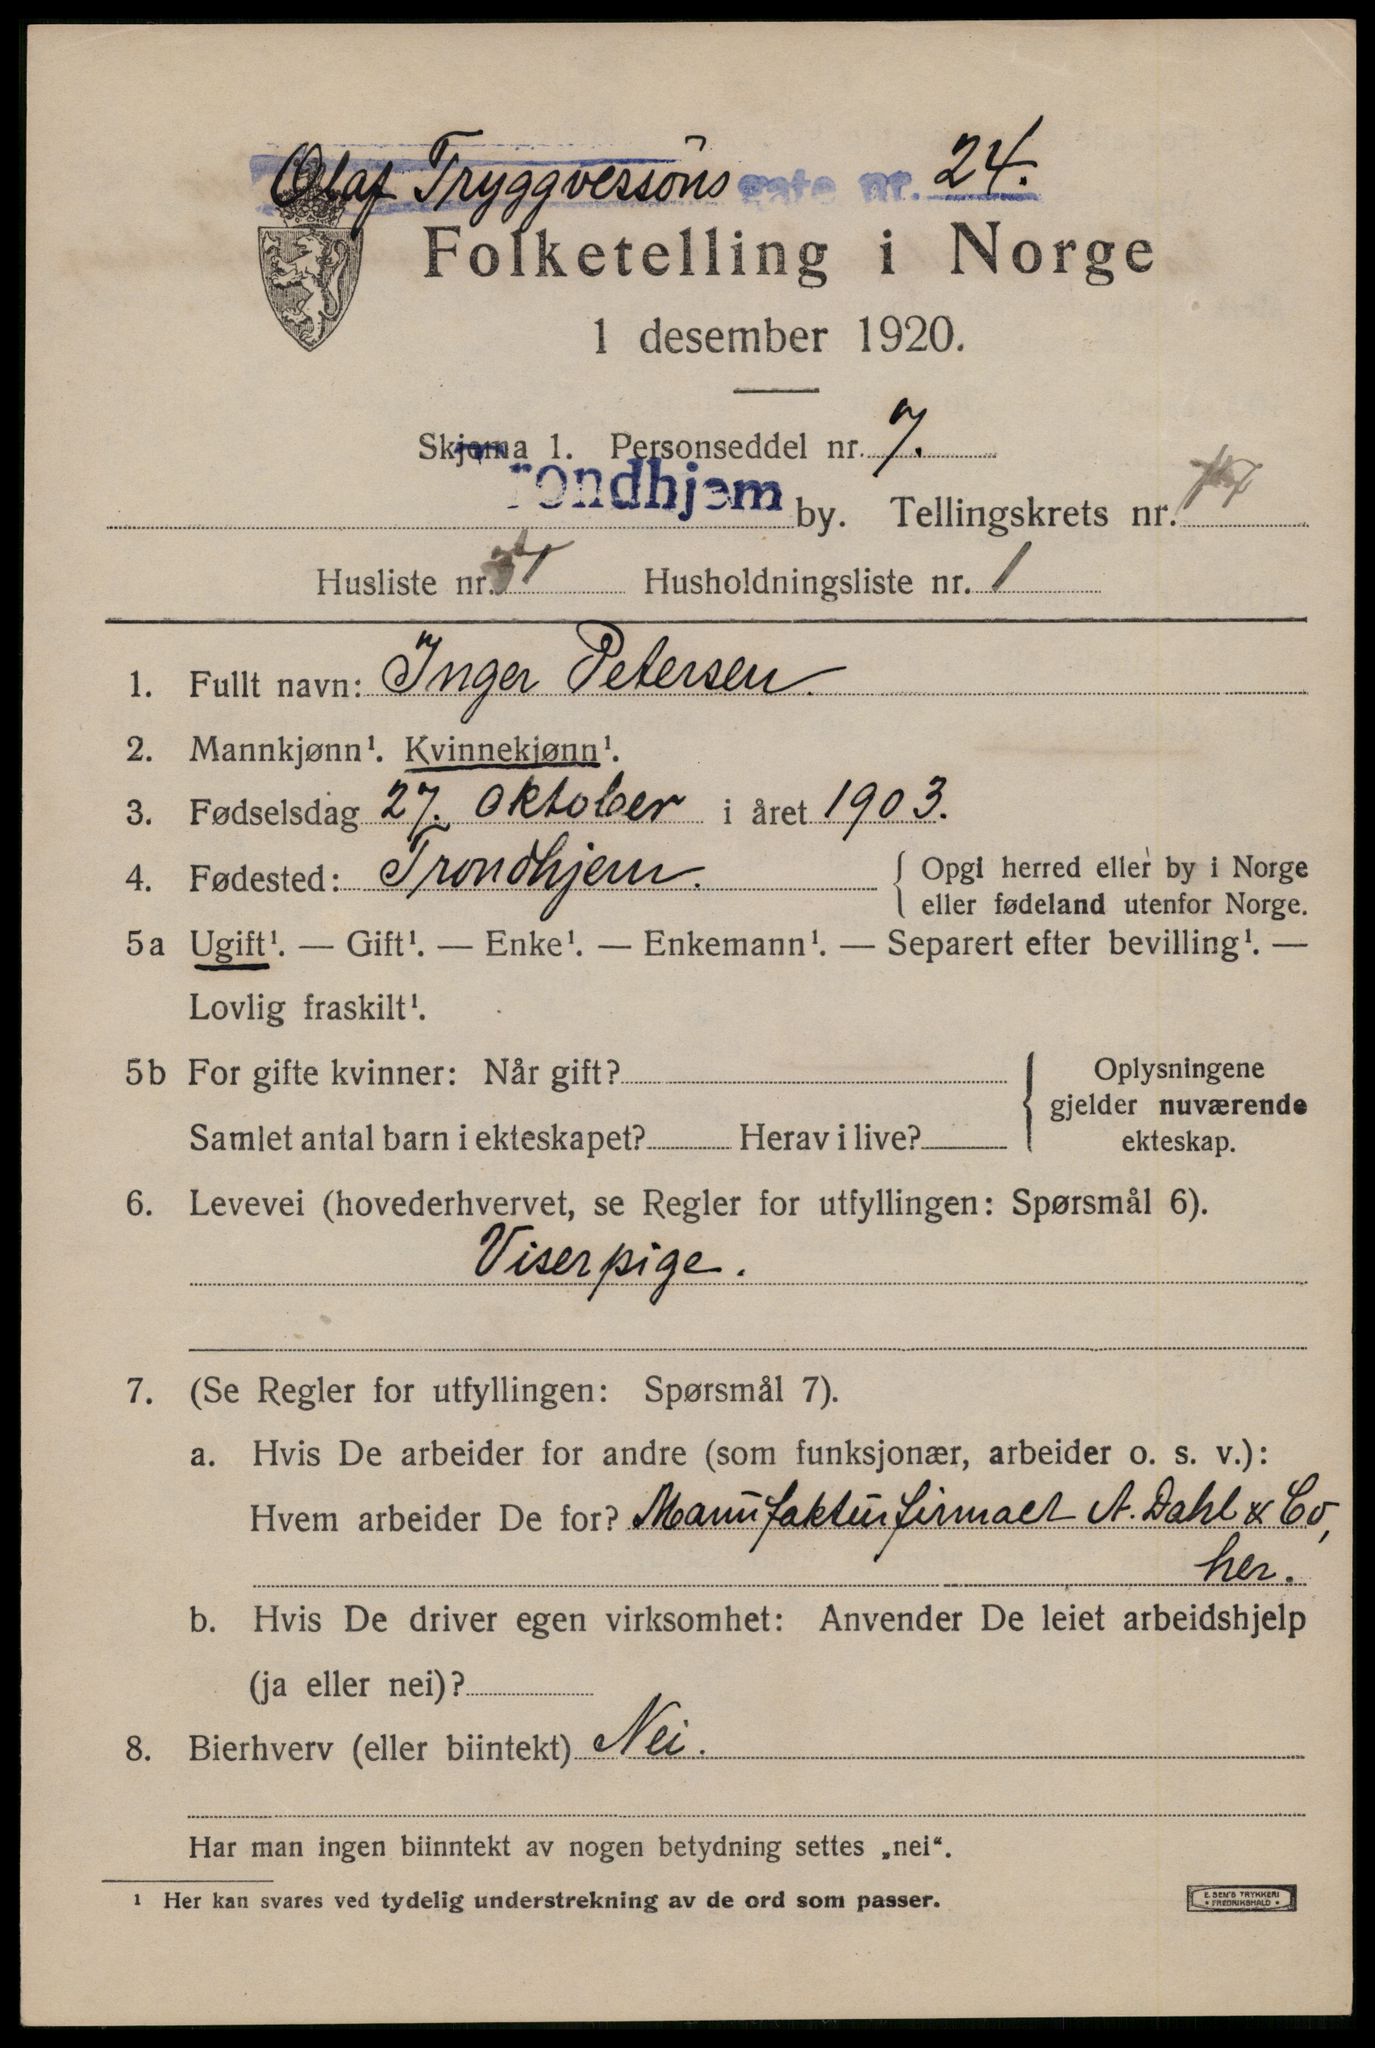 Olaf Tryggvessöns gate nr. 24.
Folketelling i Norge
1 desember 1920.
Skjema 1. Personseddel nr. 7.
rondhjem by. Tellingskrets nr.
Husliste nr. Husholdningsliste nr. 1
1. Fullt navn: Inger Petersen.
2. Mannkjønn¹. Kvinnekjønn¹.
3. Fødselsdag 27. oktober i året 1903.
4. Fødested: Trondhjem. { Opgi herred eller by i Norge
eller fødeland utenfor Norge.
5a Ugift¹. — Gift¹. — Enke¹. — Enkemann¹. — Separert efter bevilling¹. —
Lovlig fraskilt¹.
5b For gifte kvinner: Når gift? { Oplysningene
gjelder nuværende
Samlet antal barn i ekteskapet? Herav i live? ekteskap.
6. Levevei (hovederhvervet, se Regler for utfyllingen: Spørsmål 6).
Viserpige.
7. (Se Regler for utfyllingen: Spørsmål 7).
a. Hvis De arbeider for andre (som funksjonær, arbeider o. s. v.):
Hvem arbeider De for? Manufakturfirmaet A. Dahl & Co,
her.
b. Hvis De driver egen virksomhet: Anvender De leiet arbeidshjelp
(ja eller nei)?
8. Bierhverv (eller biintekt) Nei.
Har man ingen biinntekt av nogen betydning settes „nei“.
¹ Her kan svares ved tydelig understrekning av de ord som passer.
E. SEM'S TRYKKERI
• FREDRIKSHALD •